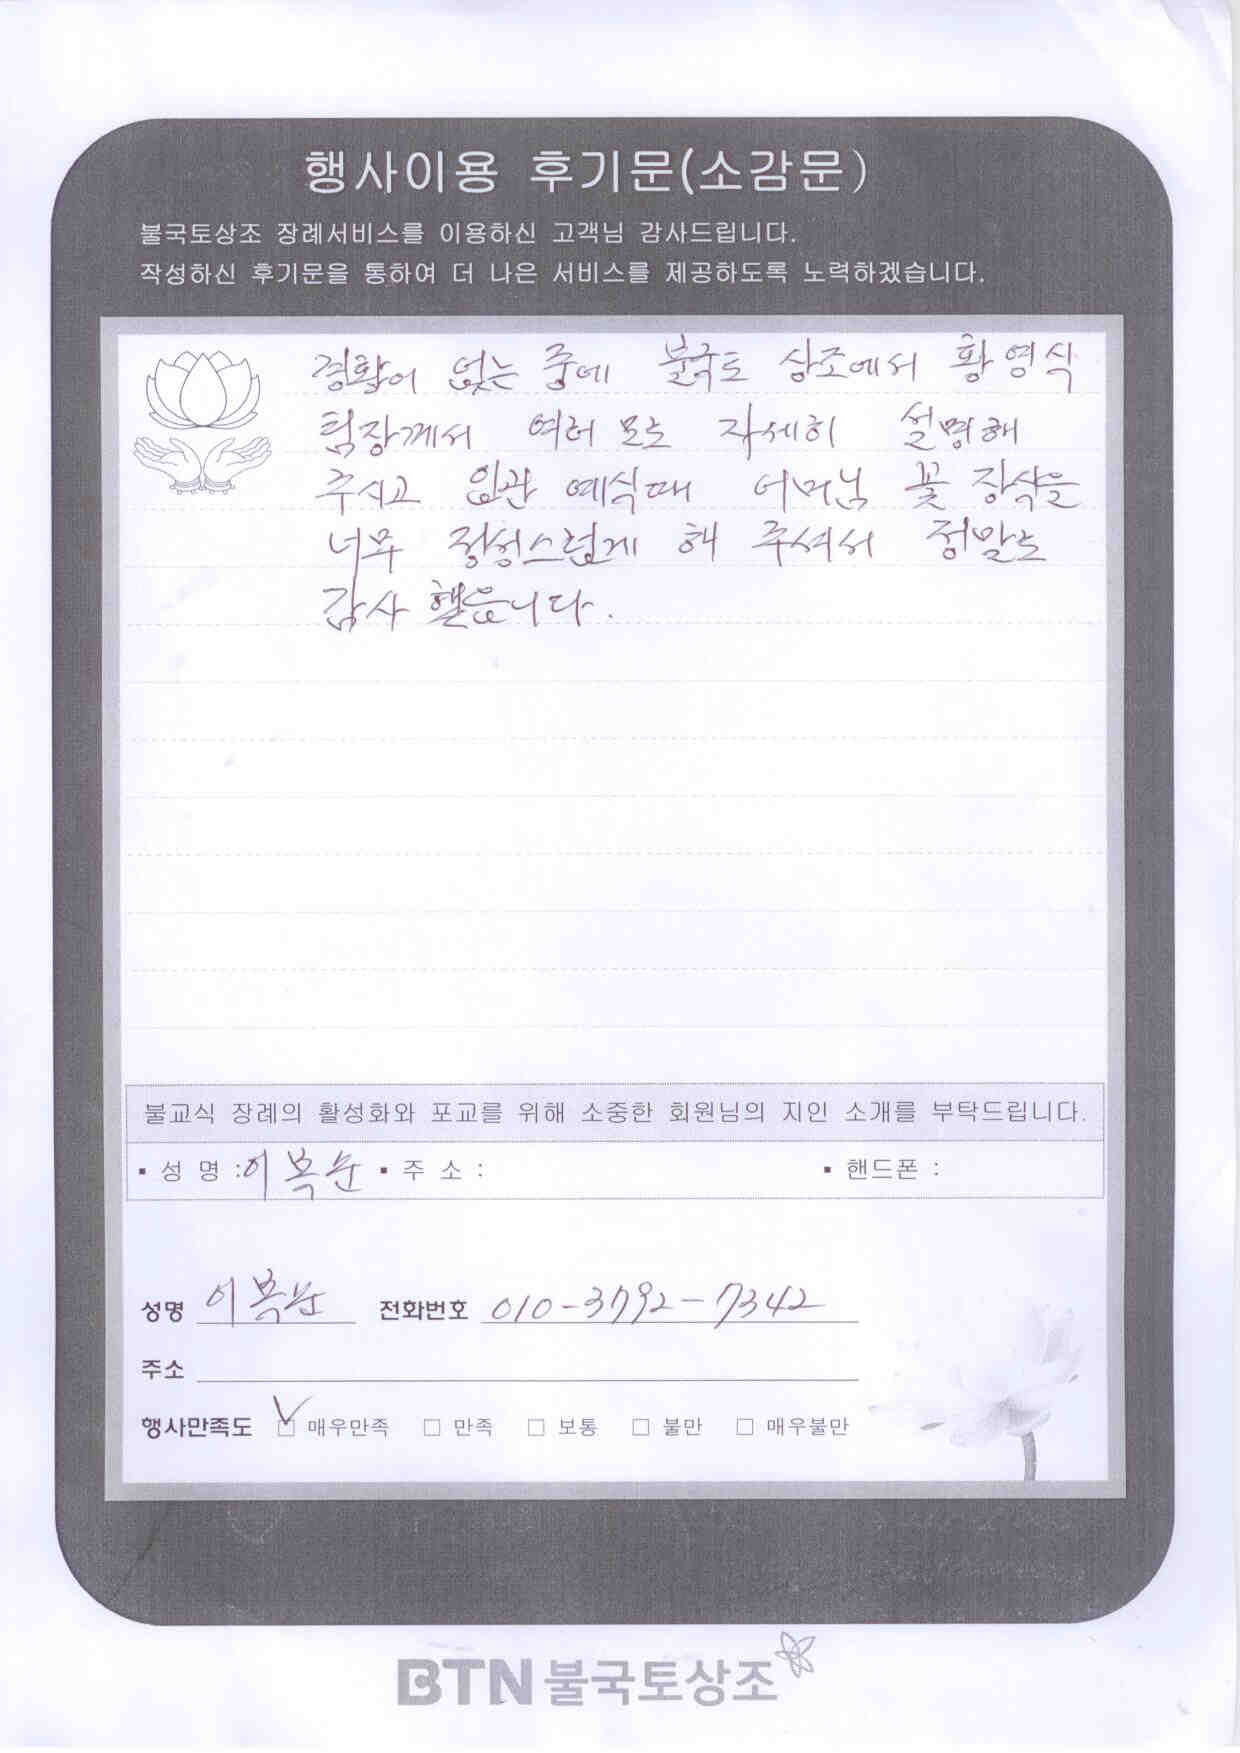 행사이용 후기문(소감문)
불국토상조 장례서비스를 이용하신 고객님 감사드립니다.
작성하신 후기문을 통하여 더 나은 서비스를 제공하도록 노력하겠습니다.
경황이 없는 중에 불국토 상조에서 황영식
팀장께서 여러모로 자세히 설명해
주시고 입관 예식때 어머님 꽃 장식을
너무 정성스럽게 해 주셔서 정말로
감사 했읍니다.
불교식 장례의 활성화와 포교를 위해 소중한 회원님의 지인 소개를 부탁드립니다.
▪ 성 명 :이복순 ▪ 주 소 : ▪ 핸드폰 :
성명 이복순 전화번호 010-3792-7342
주소
행사만족도 ☑ 매우만족 □ 만족 □ 보통 □ 불만 □ 매우불만
BTN불국토상조